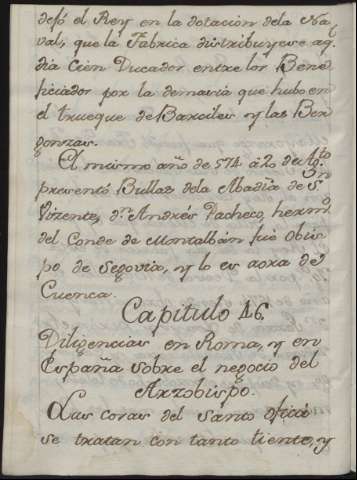 dejó el Rey en la dotacion dela Na
val; que la Fabrica distribuyese aq.l
dia Cien Ducados entre los Bene
ficiados por la demasia que hubo en
el trueque de Barciles y las Ber
gonzas.
El mismo año de 574 a 2 de Ag.to
presentó Bullas dela Abadia de S.n
Vizente, d.n Andrés Pacheco, herm.o
del Conde de Montalbán fué obis
po de Segovia, y lo es aora de
Cuenca.
Capitulo 46.
Diligencias en Roma, y en
España sobre el negocio del
Arzobispo.
Las cosas del Santo oficio
se tratan con tanto tiento, y